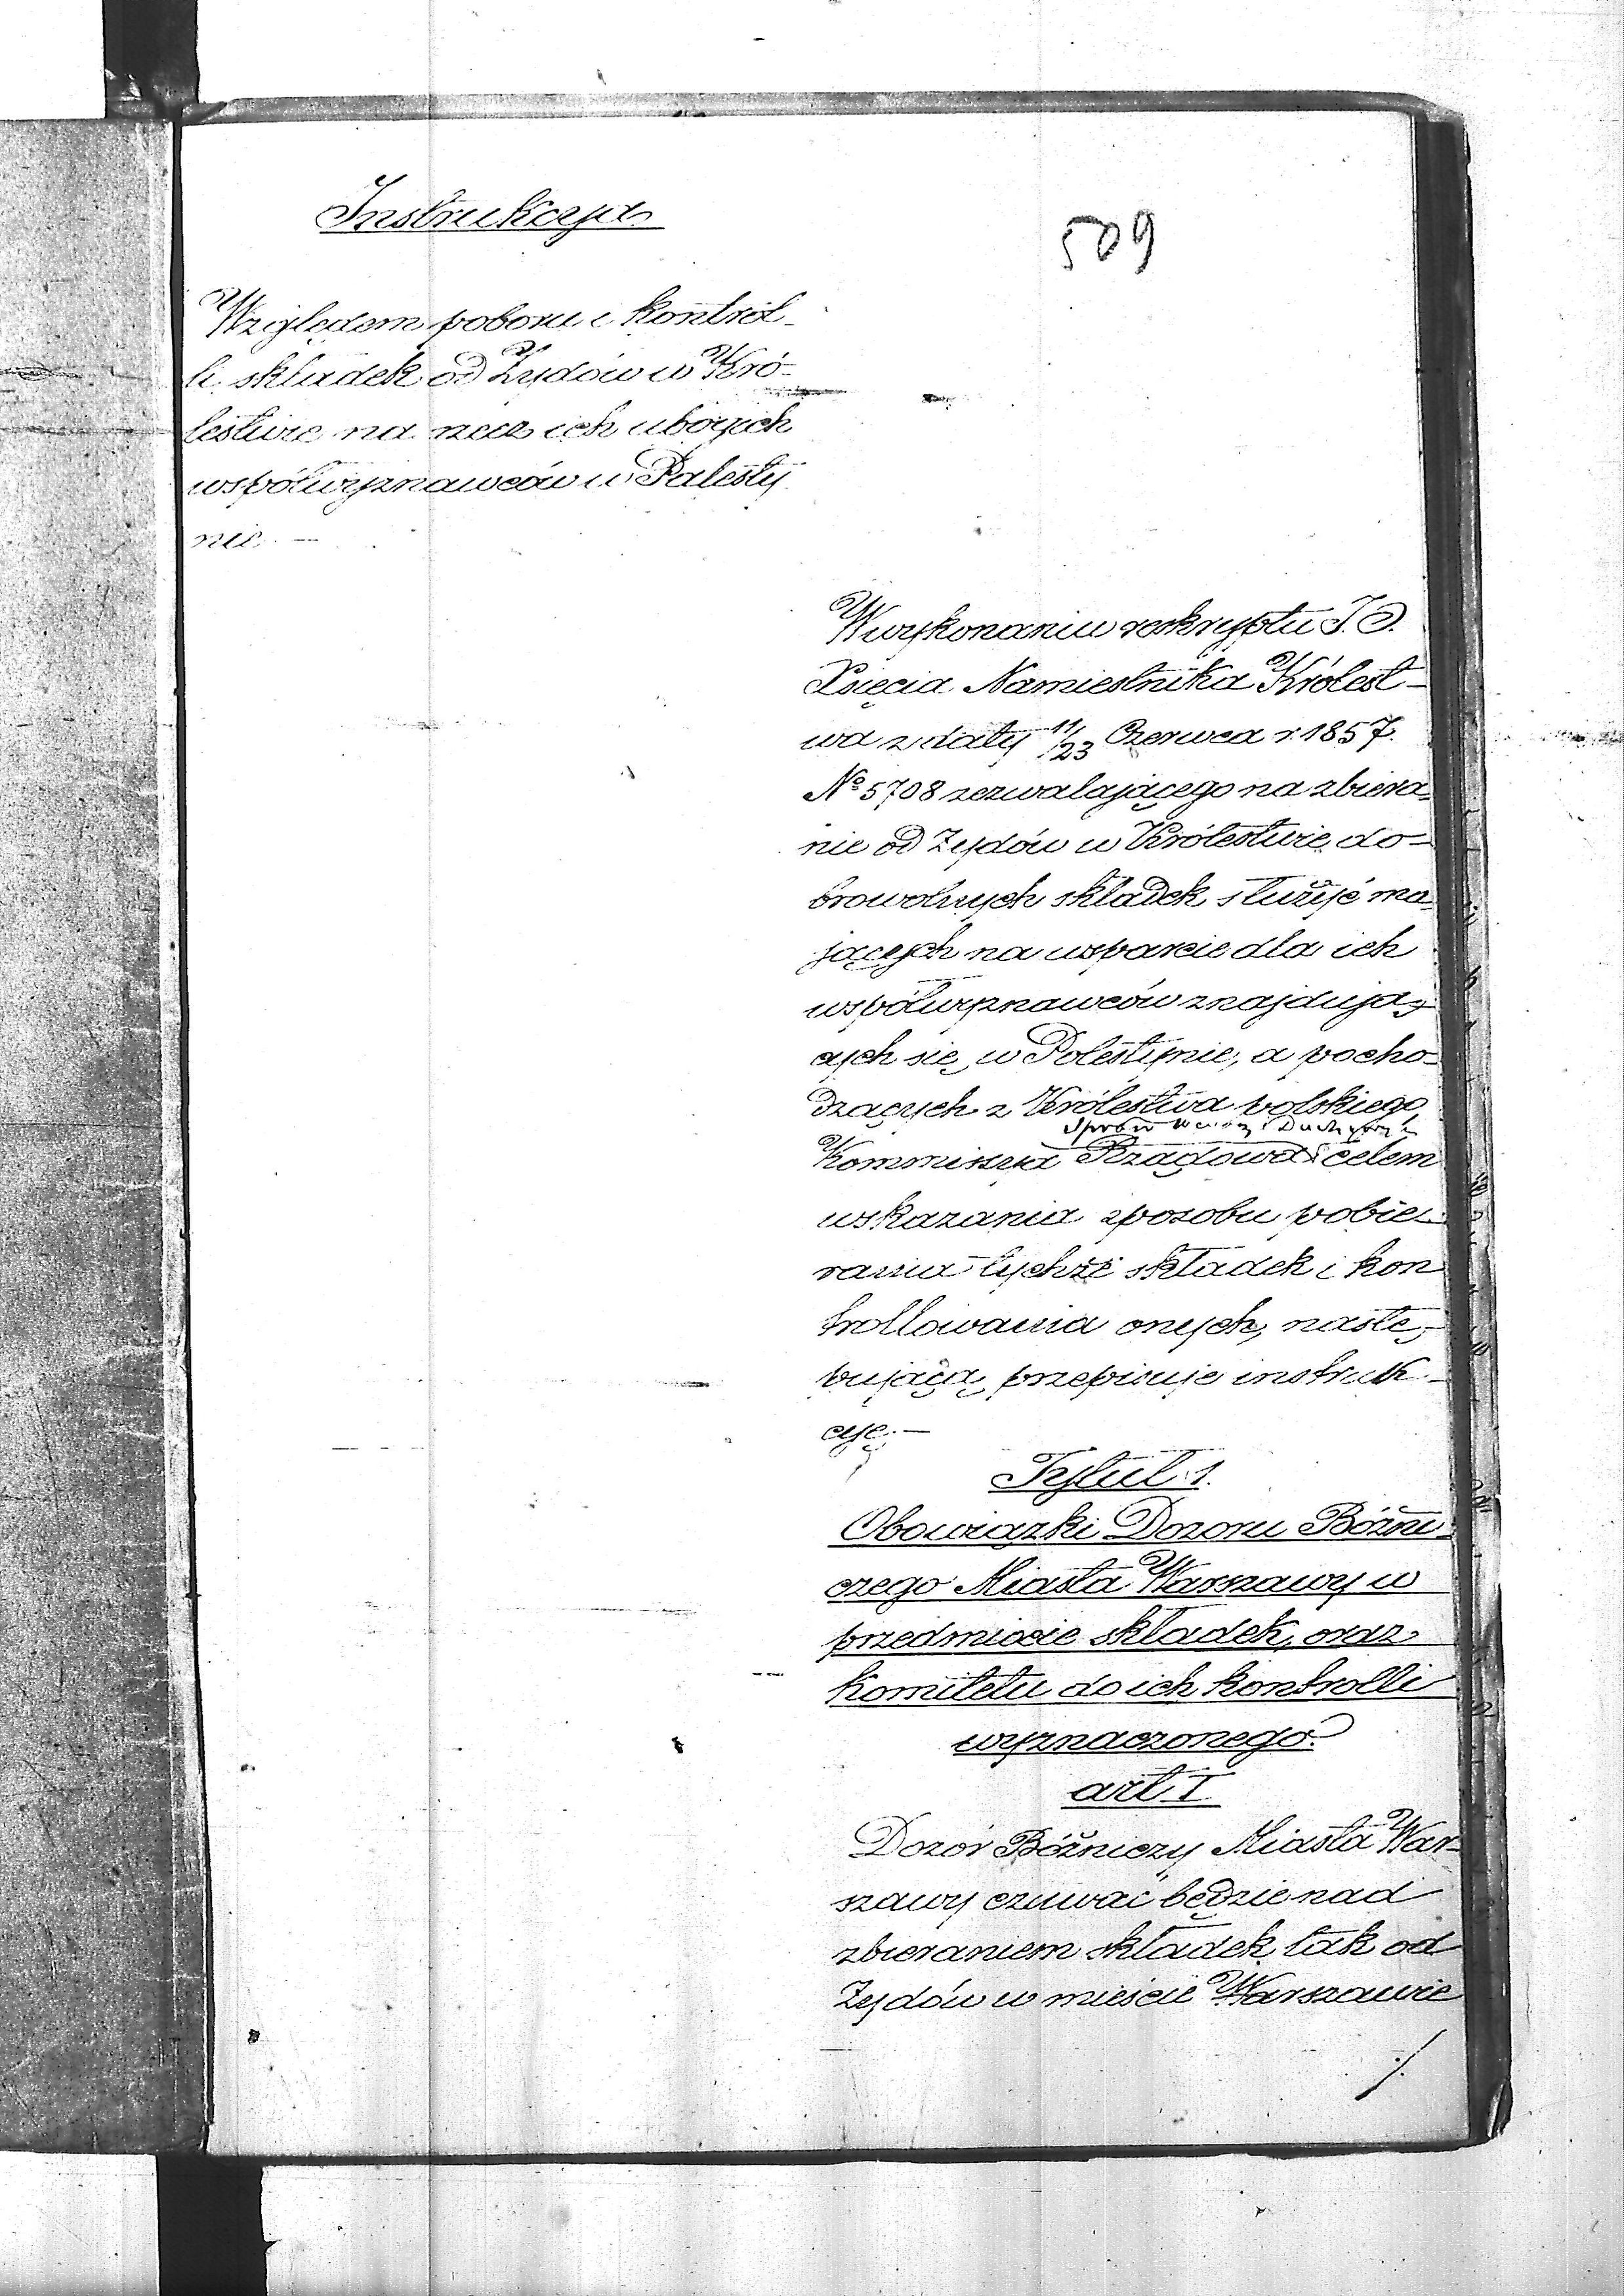 Instrukcya
509
Względem poboru i kontrol-
li składek od Żydów w Kró-
lestwie na rzecz ich ubogich
współwyznawców w Palesty
nie. —
W wykonaniu reskryptu J. O.
Xsięcia Namiestnika Królest-
wa z daty 11/23 Czerwca r. 1857.
No 5708 zezwalającego na zbiera-
nie od Żydów w Królestwie do-
browolnych składek służyć ma-
jących na wsparcie dla ich
współwyznawców znajdują-
cych się w Palestynie, a pocho-
dzących z Królestwa polskiego
Spraw Wewn. i Duchown.
Kommissya Rządowa celem
wskazania sposobu pobie-
rania tychże składek i kon
trollowania onych, nastę-
pującą przepisuje instruk-
cyę. —
Tytuł 1.
Obowiązki Dozoru Bóżni-
czego Miasta Warszawy w
przedmiocie składek, oraz
Komitetu do ich kontrolli
wyznaczonego.
art. I
Dozór Bóżniczy Miasta War-
szawy czuwać będzie nad
zbieraniem składek tak od
Żydów w mieście Warszawie
./.